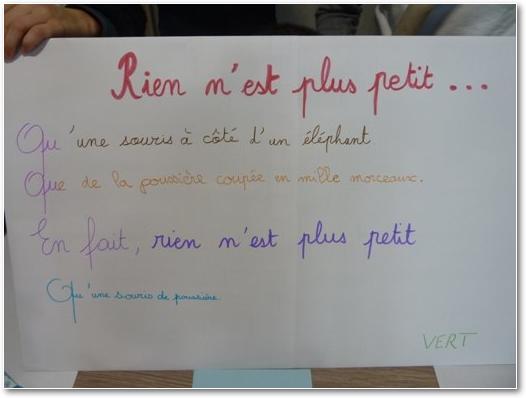 Rien n'est plus petit ...
Qu'une souris à côté d'un éléphant
Que de la poussière coupée en mille morceaux.
En fait, rien n'est plus petit
Qu'une souris de poussière.
VERT